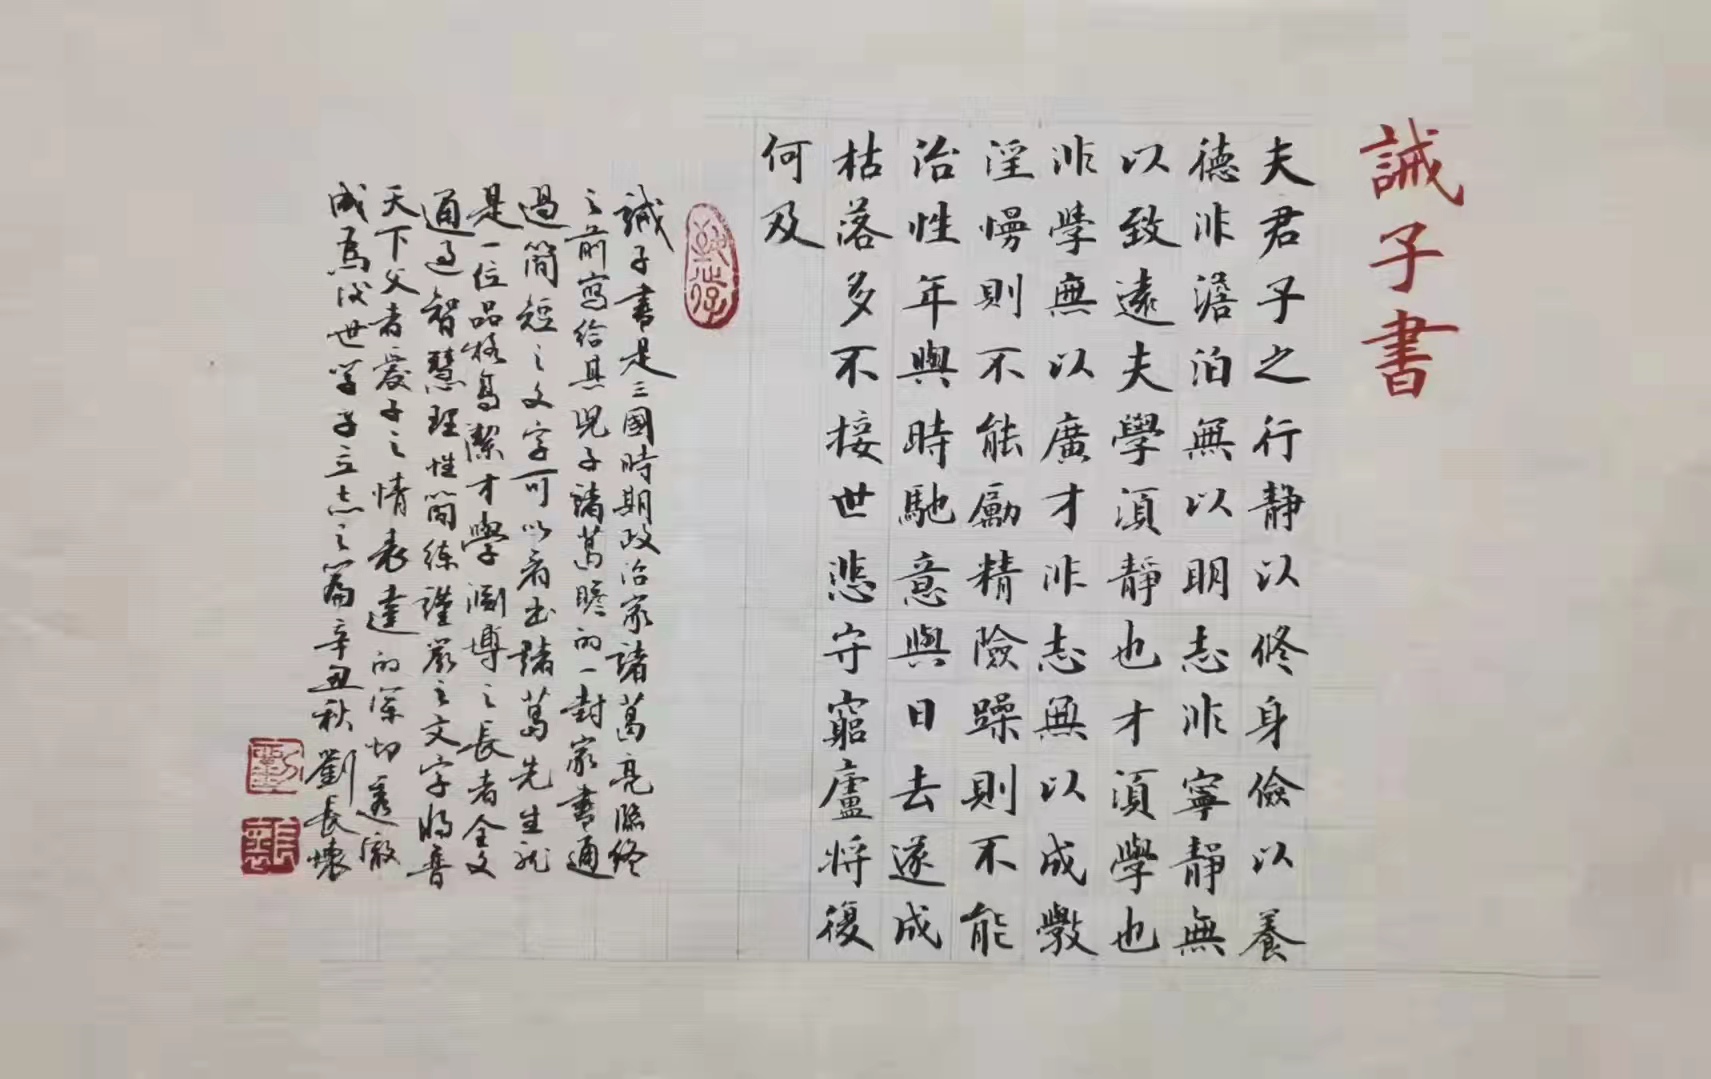 誡子書
夫君子之行靜以修身儉以養
德非澹泊無以明志非寧靜無
以致遠夫學須靜也才須學也
非學無以廣才非志無以成學
淫慢則不能勵精險躁則不能
治性年與時馳意與日去遂成
枯落多不接世悲守窮廬將復
何及
誡子書是三國時期政治家諸葛亮臨終
之前寫給其兒子諸葛瞻的一封家書通
過簡短之文字可以看出諸葛先生
是一位品格高潔才學淵博之長者全文
通過智慧理性簡練謹嚴之文字將普
天下父者爱子之情表達的深切
成為後世学子立志之篇辛丑秋劉長懷